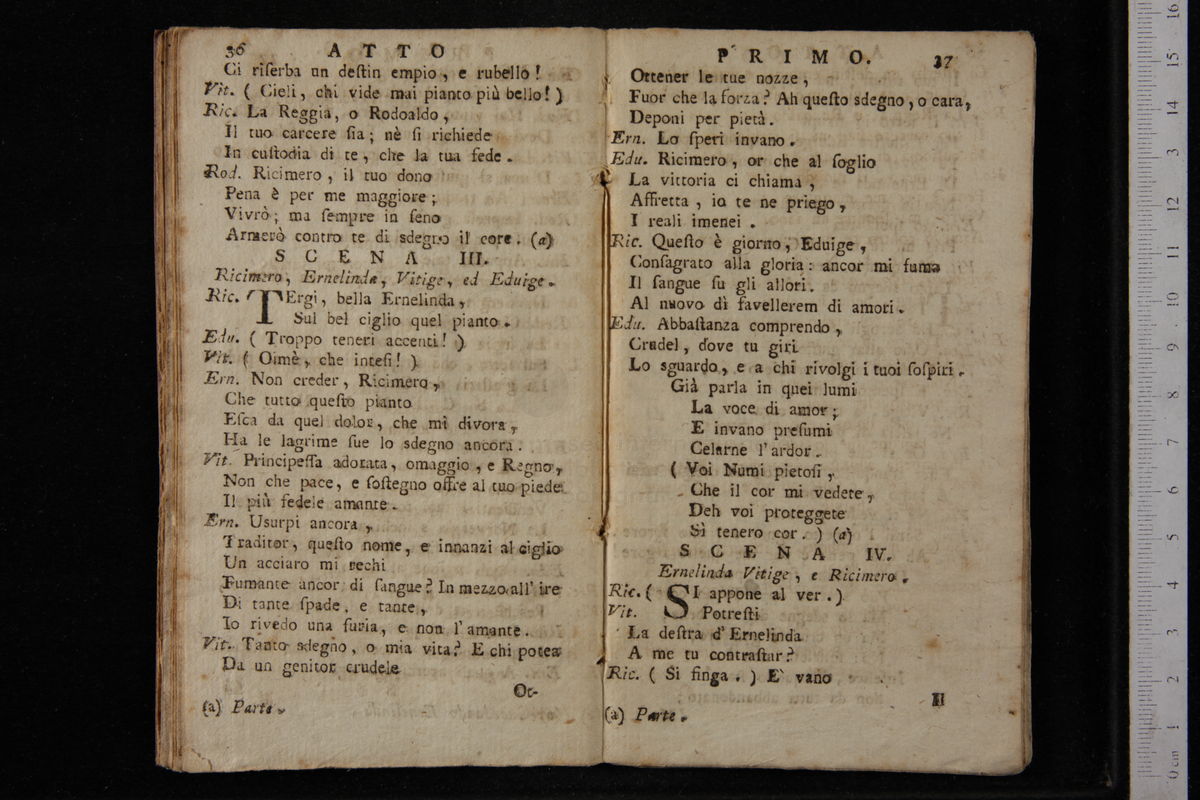 36 ATTO
Ci riſerba un deſtin empio, e rubello!
Vit. ( Cieli, chi vide mai pianto più bello! )
Ric. La Reggia, o Rodoaldo,
Il tuo carcere ſia; nè ſi richiede
In cuſtodia di te, che la tua fede.
Rod. Ricimero, il tuo dono
Pena è per me maggiore;
Vivrò; ma ſempre in ſeno
Armerò contro te di sdegno il core. (a)
SCENA III.
Ricimero, Ernelinda, Vitige, ed Eduige.
Ric. TErgi, bella Ernelinda,
Sul bel ciglio quel pianto.
Edu. ( Troppo teneri accenti! )
Vit. ( Oimè, che inteſi! )
Ern. Non creder, Ricimero,
Che tutto queſto pianto
Eſca da quel dolor, che mi divora,
Ha le lagrime ſue lo sdegno ancora.
Vit. Principeſſa adorata, omaggio, e Regno,
Non che pace, e ſoſtegno offre al tuo piede
Il più fedele amante.
Ern. Usurpi ancora,
Traditor, queſto nome, e innanzi al ciglio
Un acciaro mi rechi
Fumante ancor di ſangue? In mezzo all' ire
Di tante ſpade, e tante,
Io rivedo una furia, e non l'amante.
Vit. Tanto sdegno, o mia vita? E chi potea
Da un genitor crudele
Ot-
(a) Parte.
PRIMO. 37
Ottener le tue nozze,
Fuor che la forza? Ah queſto sdegno, o cara,
Deponi per pietà.
Ern. Lo ſperi invano.
Edu. Ricimero, or che al ſoglio
La vittoria ci chiama,
Affretta, io te ne priego,
I reali imenei.
Ric. Queſto è giorno, Eduige,
Conſagrato alla gloria: ancor mi fuma
Il ſangue ſu gli allori.
Al nuovo dì favellerem di amori.
Edu. Abbaſtanza comprendo,
Crudel, dove tu giri
Lo sguardo, e a chi rivolgi i tuoi ſoſpiri.
Già parla in quei lumi
La voce di amor;
E invano preſumi
Celarne l'ardor.
( Voi Numi pietoſi,
Che il cor mi vedete,
Deh voi proteggete
Sì tenero cor. ) (a)
SCENA IV.
Ernelinda Vitige, e Ricimero.
Ric. ( SI appone al ver. )
Vit. Potreſti
La deſtra d'Ernelinda
A me tu contraſtar?
Ric. ( Si finga. ) E' vano
Il
(a) Parte.